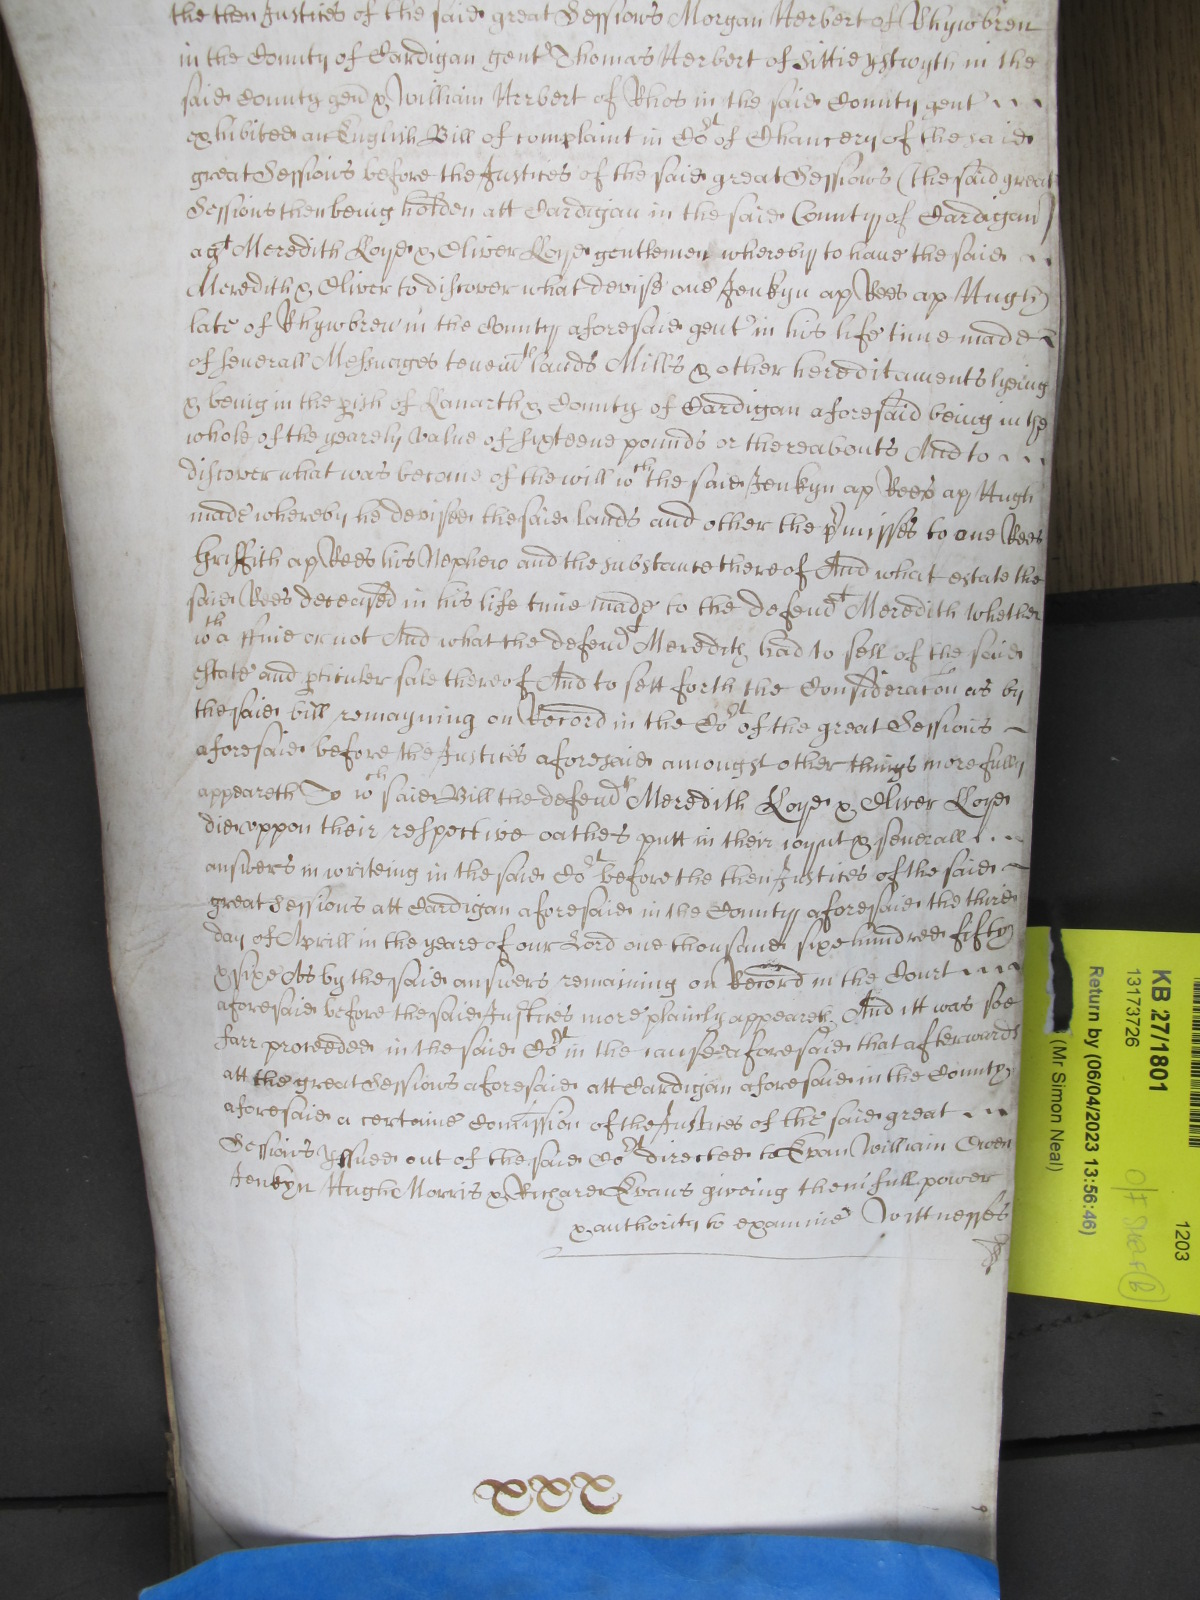 the then Justices of the said great Sessions Morgan Herbert of Rhywbren
in the County of Cardigan gent Thomas Herbert of Sittie ystwyth in the
said County gen & William Herbert of Rhos in the said County gent
exhibited an English Bill of complaint in Cort of Chancery of the said
great Sessions before the Justices of the said great Sessions (the said great
Sessions then being holden att Cardigan in the said County of Cardigan)
agt Meredith Loyd & Oliver Loyd gentlemen whereby to have the said
Meredith & Oliver to discover what devise one Jenkyn ap Rees ap Hugh
late of Rhywbren in the County aforesaid gent in his life time made
of severall Messuages tenemts lands Mills & other hereditaments lyeing
& being in the pish of Lanarth & County of Cardigan aforesaid being in the
whole of the yearely value of sixteene pounds or thereabouts And to
discover what was become of the will wch the said Jenkyn ap Rees ap Hugh
made whereby he devised the said lands and other the pmisses to one Rees
Griffith ap Rees his Nephew and the substance thereof And what estate the
said Rees deceased in his life time made to the defendt Meredith whether
wth a ffine or not And what the defendt Meredith had to sell of the said
estate and pticuler sale thereof And to sett forth the Consideracon as by
the said bill remayning on Record in the Cort of the great Sessions
aforesaid before the Justices aforesaid amongst other things more fully
appeareth To wch said Bill the defendts Meredith Loyd & Oliver Loyd
did uppon their respective oathes putt in their joynt & severall
answers in writeing in the said Cort before the then Justices of the said
great Sessions att Cardigan aforesaid in the County aforesaid the third
day of Aprill in the yeare of our Lord one thousand sixe hundred fifty
& sixe As by the said answers remaining on Record in the Court
aforesaid before the said Justices more plainly appeareth And itt was soe
farr proceeded in the said Cort in the cause aforesaid that afterwards
att the great Sessions aforesaid att Cardigan aforesaid in the County
aforesaid a certaine Comission of the Justices of the said great
Sessions yssued out of the said Cort directed to Evan William Owen
Jenkyn Hugh Morris & Richard Evans giveing them full power
& authority to examine Wittnesses
xxx
KB 27/1801
13173726
Return by (06/04/2023 13:56:46)
(Mr Simon Neal)
1203